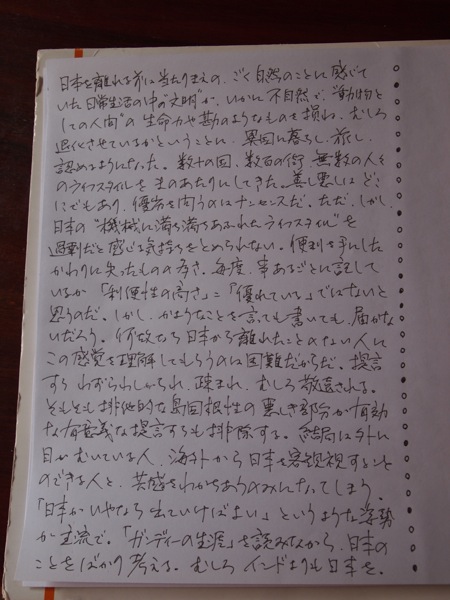 日本を離れる前に当たりまえの、ごく自然のことに感じて
いた日常生活の中の"文明"が、いかに不自然で、"動物と
しての人間"の生命力や勘のようなものを損ね、むしろ
退化させているかということに、異国に暮らし、旅し、
認めるようになった。数十の国、数百の街、無数の人々
のライフスタイルを目のあたりにしてきた。善し悪しはどこ
にでもあり、優劣を問うのはナンセンスだ。ただ、しかし、
日本の"機械に満ち満ちあふれたライフスタイル"を
過剰だと感じる気持ちをとめられない。便利を手にした
かわりに失ったものの多き。毎度、事あるごとに記して
いるが「利便性の高さ」=「優れている」ではないと
思うのだ。しかし、かようなことを言っても書いても、届かな
いだろう。何故なら日本から離れたことのない人に
この感覚を理解してもらうのは困難だからだ。提言
すら わずらわしがられ、疎まれ、むしろ敬遠される。
そもそも排他的な島国根性の悪しき部分が有効
な有意義な提言すらも排除する。結局は外に
目がむいている人、海外から日本を客観視すること
のできる人と、共感をわかちあうのみになってしまう。
「日本がいやなら出ていけばよい」というような姿勢
が主流で。「ガンディーの生涯」を読みながら、日本の
ことをばかり考える。むしろインドよりも日本を。